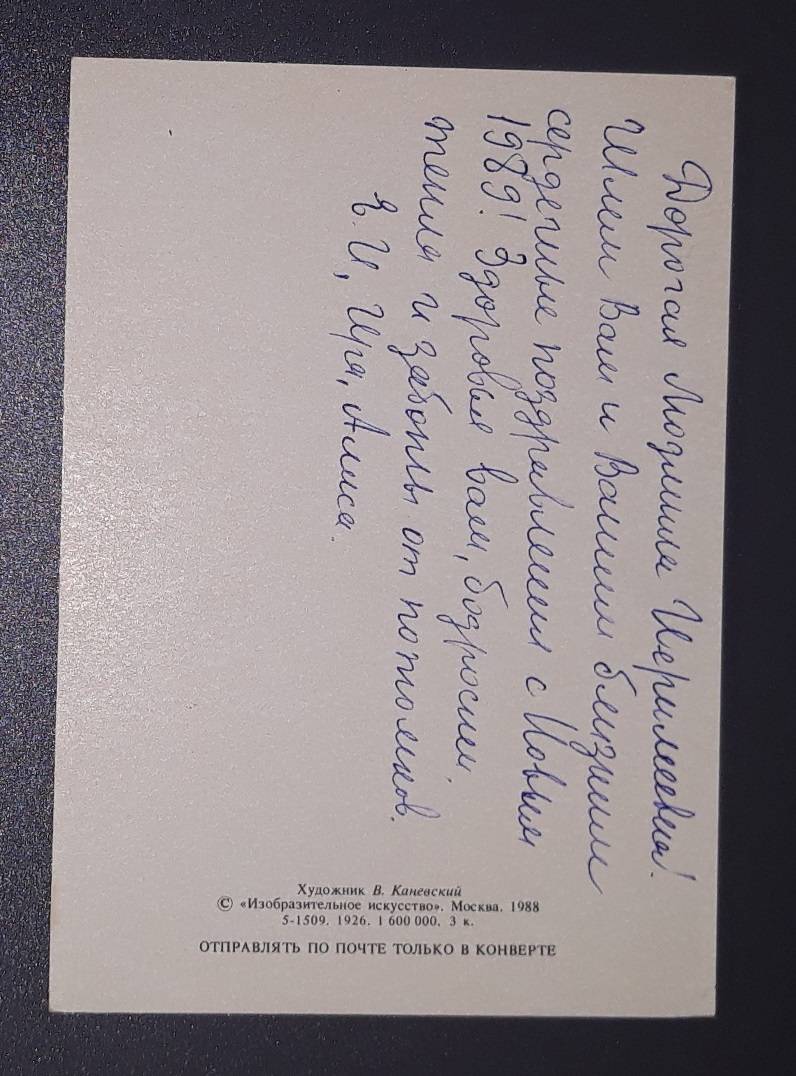 Дорогая Людмила
Шлем Вам и Вашим близким
сердечные поздравления с Новым
1989! Здоровья вам, бодрости,
тепла и заботы от потомков.
Я. И, Ира, Алиса.
Художник В. Каневский
© «Изобразительное искусство». Москва. 1988
5-1509. 1926. 1 600 000. 3 к.
ОТПРАВЛЯТЬ ПО ПОЧТЕ ТОЛЬКО В КОНВЕРТЕ